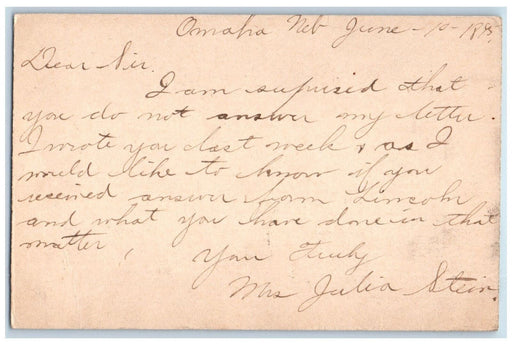 Omaha Neb June - 10 - 188
Dear Sir.
I am suprised that
you do not answer my letter.
I wrote you last week & as I
would like to know if you
received answer from Lincoln
and what you have done in that
matter,
Your Truly
Mrs Julia Stein.